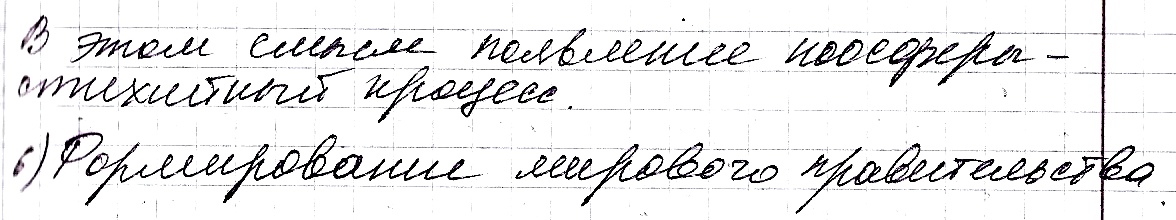 В этом смысле появление ноосферы –
стихийный процесс.
б) Формирование мирового правительства.